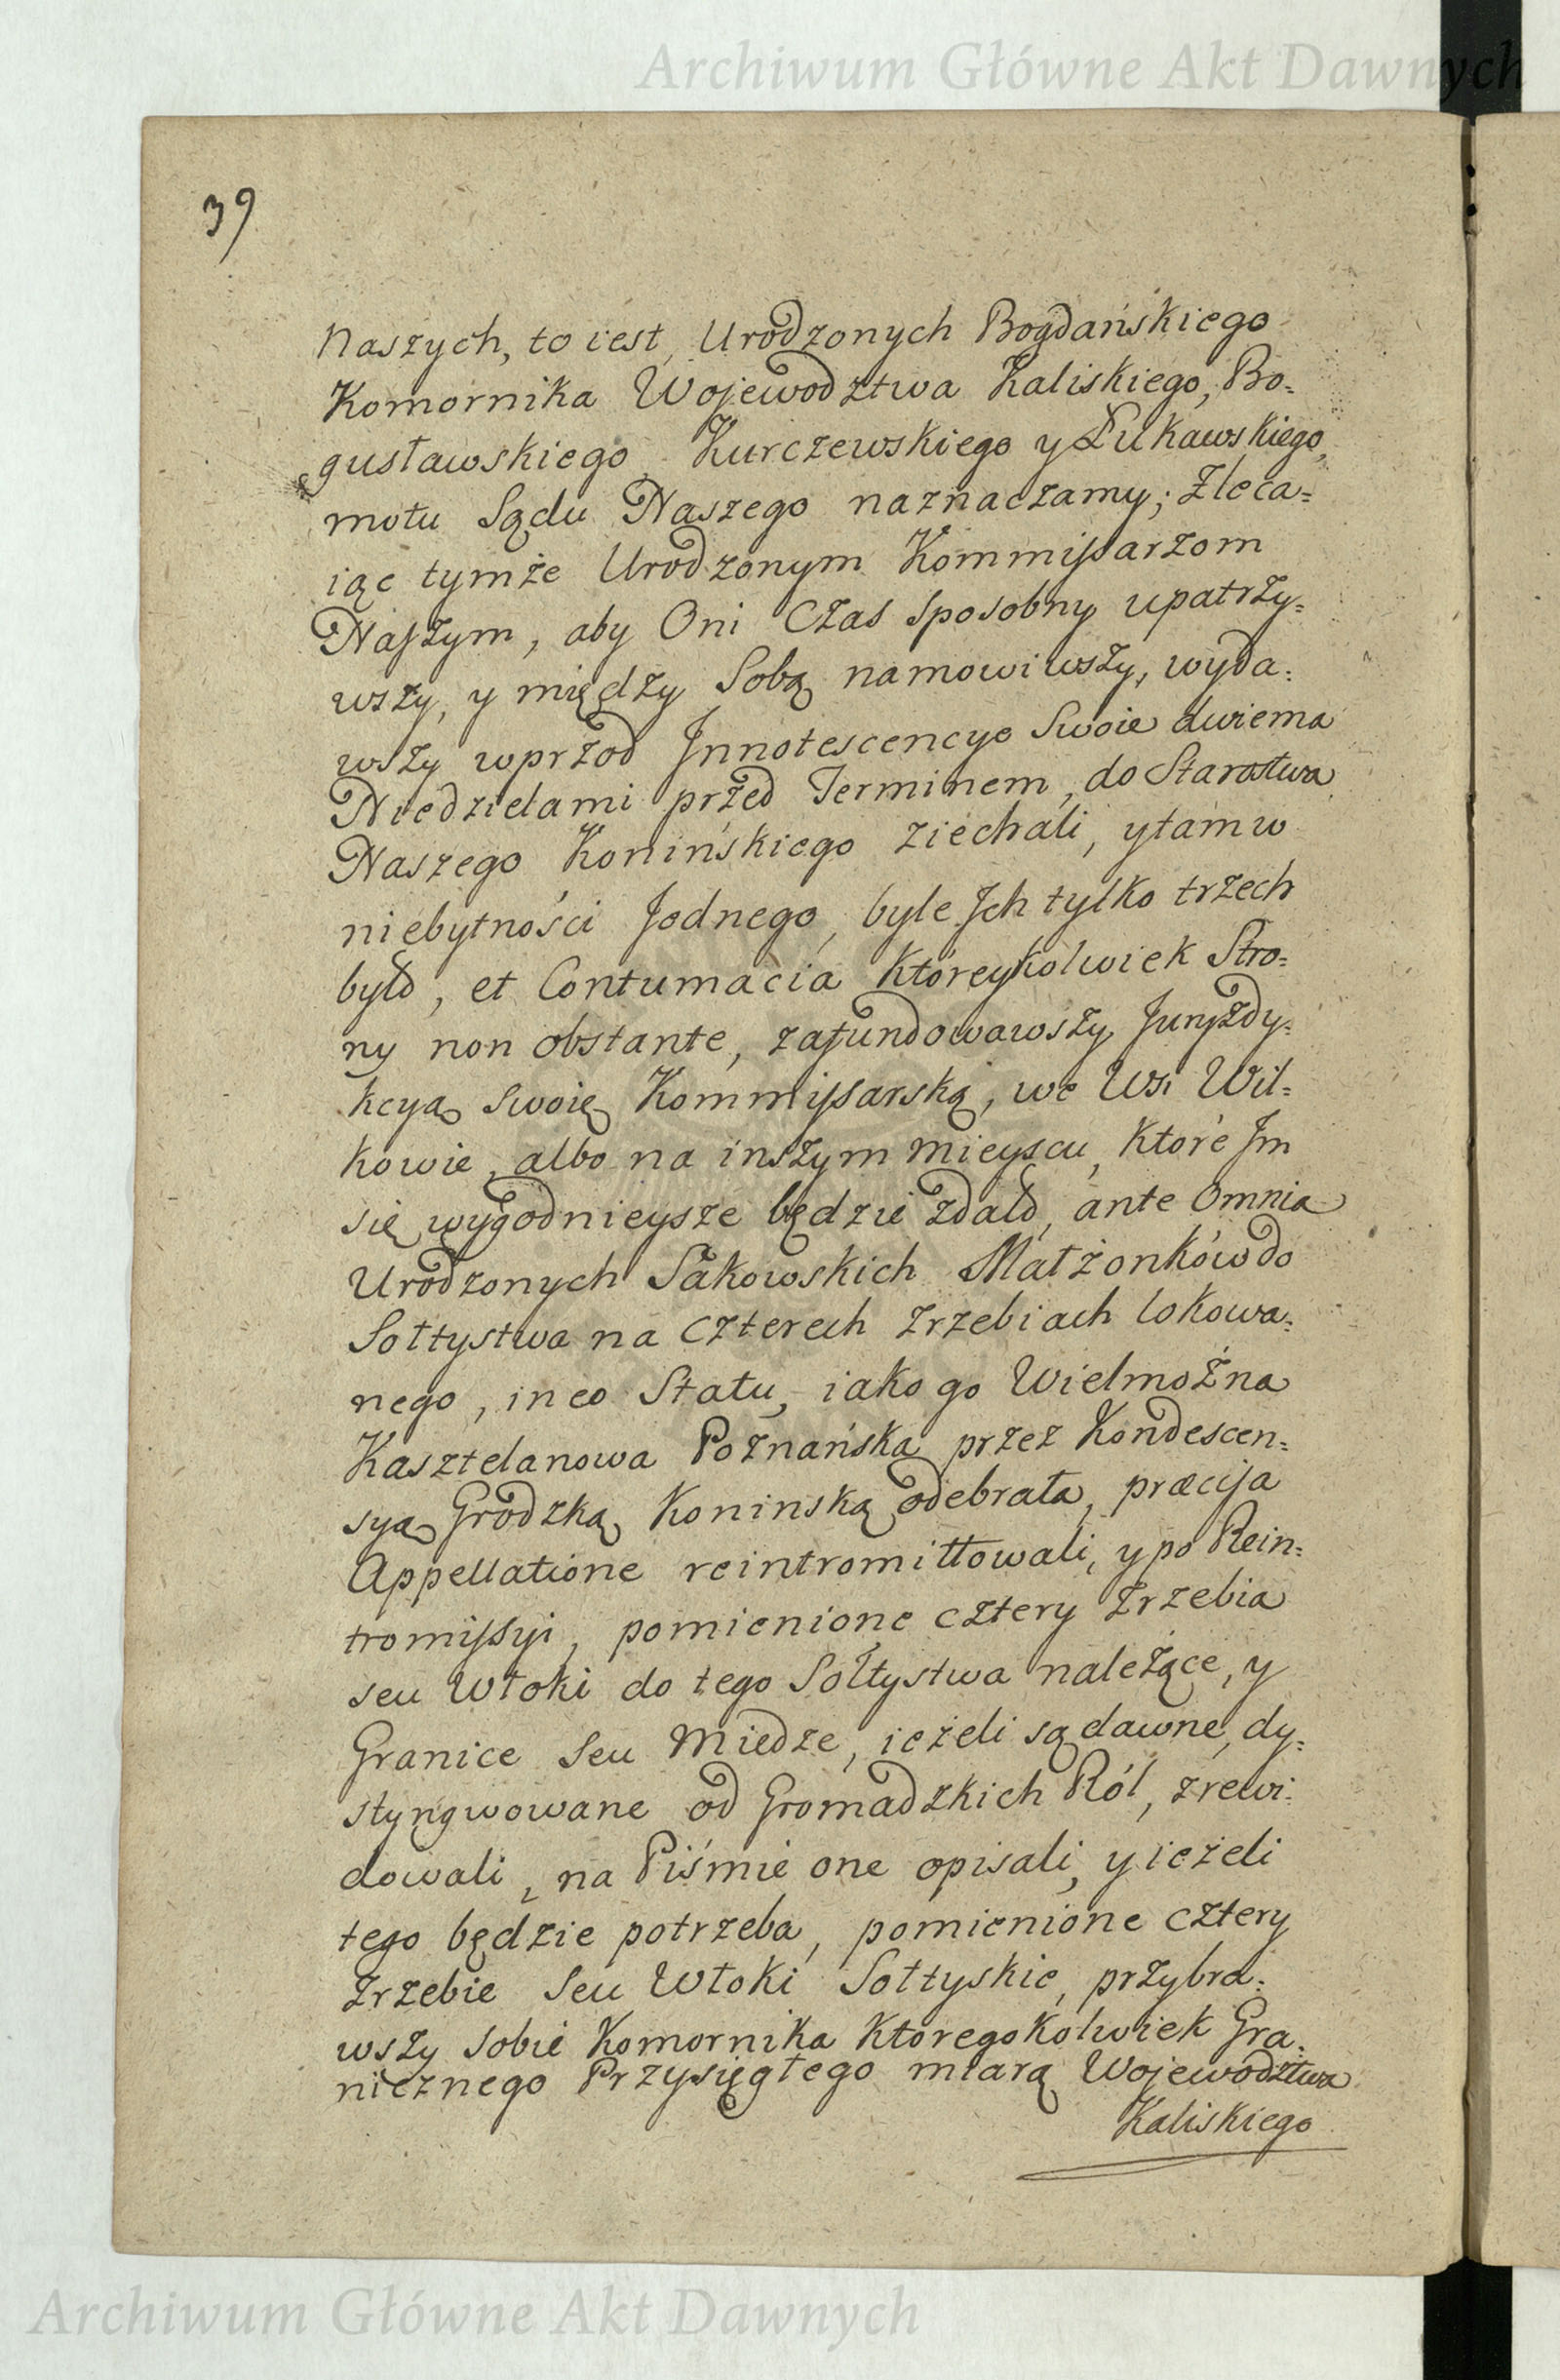 Archiwum Główne Akt Dawnych
39
Naszych, to iest, Urodzonych Bogdańskiego
Komornika Wojewodztwa Kaliskiego, Bo=
gusławskiego, Kurczewskiego y Łukawskiego,
motu Sądu Naszego naznaczamy; Zleca=
iąc tymże Urodzonym Kommissarzom
Naszym, aby Oni Czas sposobny upatrzy=
wszy, y między Sobą namowiwszy, wyda=
wszy wprzod Innotescencye Swoie dwiema
Niedzielami przed Terminem, do Starostwa
Naszego Konińskiego ziechali, y tam w
niebytności Jednego, byle Ich tylko trzech
było, et Contumacia Któreykolwiek Stro=
ny non obstante, zafundowawszy Juryzdy=
kcyą Swoię Kommissarską, we Wsi Wil=
kowie, albo na inszym mieyscu, Ktore Im
się wygodnieysze będzie zdało, ante Omnia
Urodzonych Sakowskich Małżonków do
Sołtystwa na Czterech Zrzebiach lokowa=
nego, in eo Statu, iako go Wielmożna
Kasztelanowa Poznańska przez Kondescen=
syą Grodzką Koninską odebrała, præcisa
Appellatione reintromittowali, y po Rein=
tromissyi, pomienione cztery Zrzebia
seu Włoki do tego Sołtystwa należące, y
Granice Seu Miedze, ieżeli są dawne, dy=
styngwowane od Gromadzkich Ról, zrewi=
dowali, na Piśmie one opisali, y ieżeli
tego będzie potrzeba, pomienione cztery
Zrzebie Seu Włoki Sołtyskie, przybra=
wszy Sobie Komornika Ktoregokolwiek Gra=
nicznego Przysięgłego miarą Wojewodztwa
Kaliskiego
Archiwum Główne Akt Dawnych